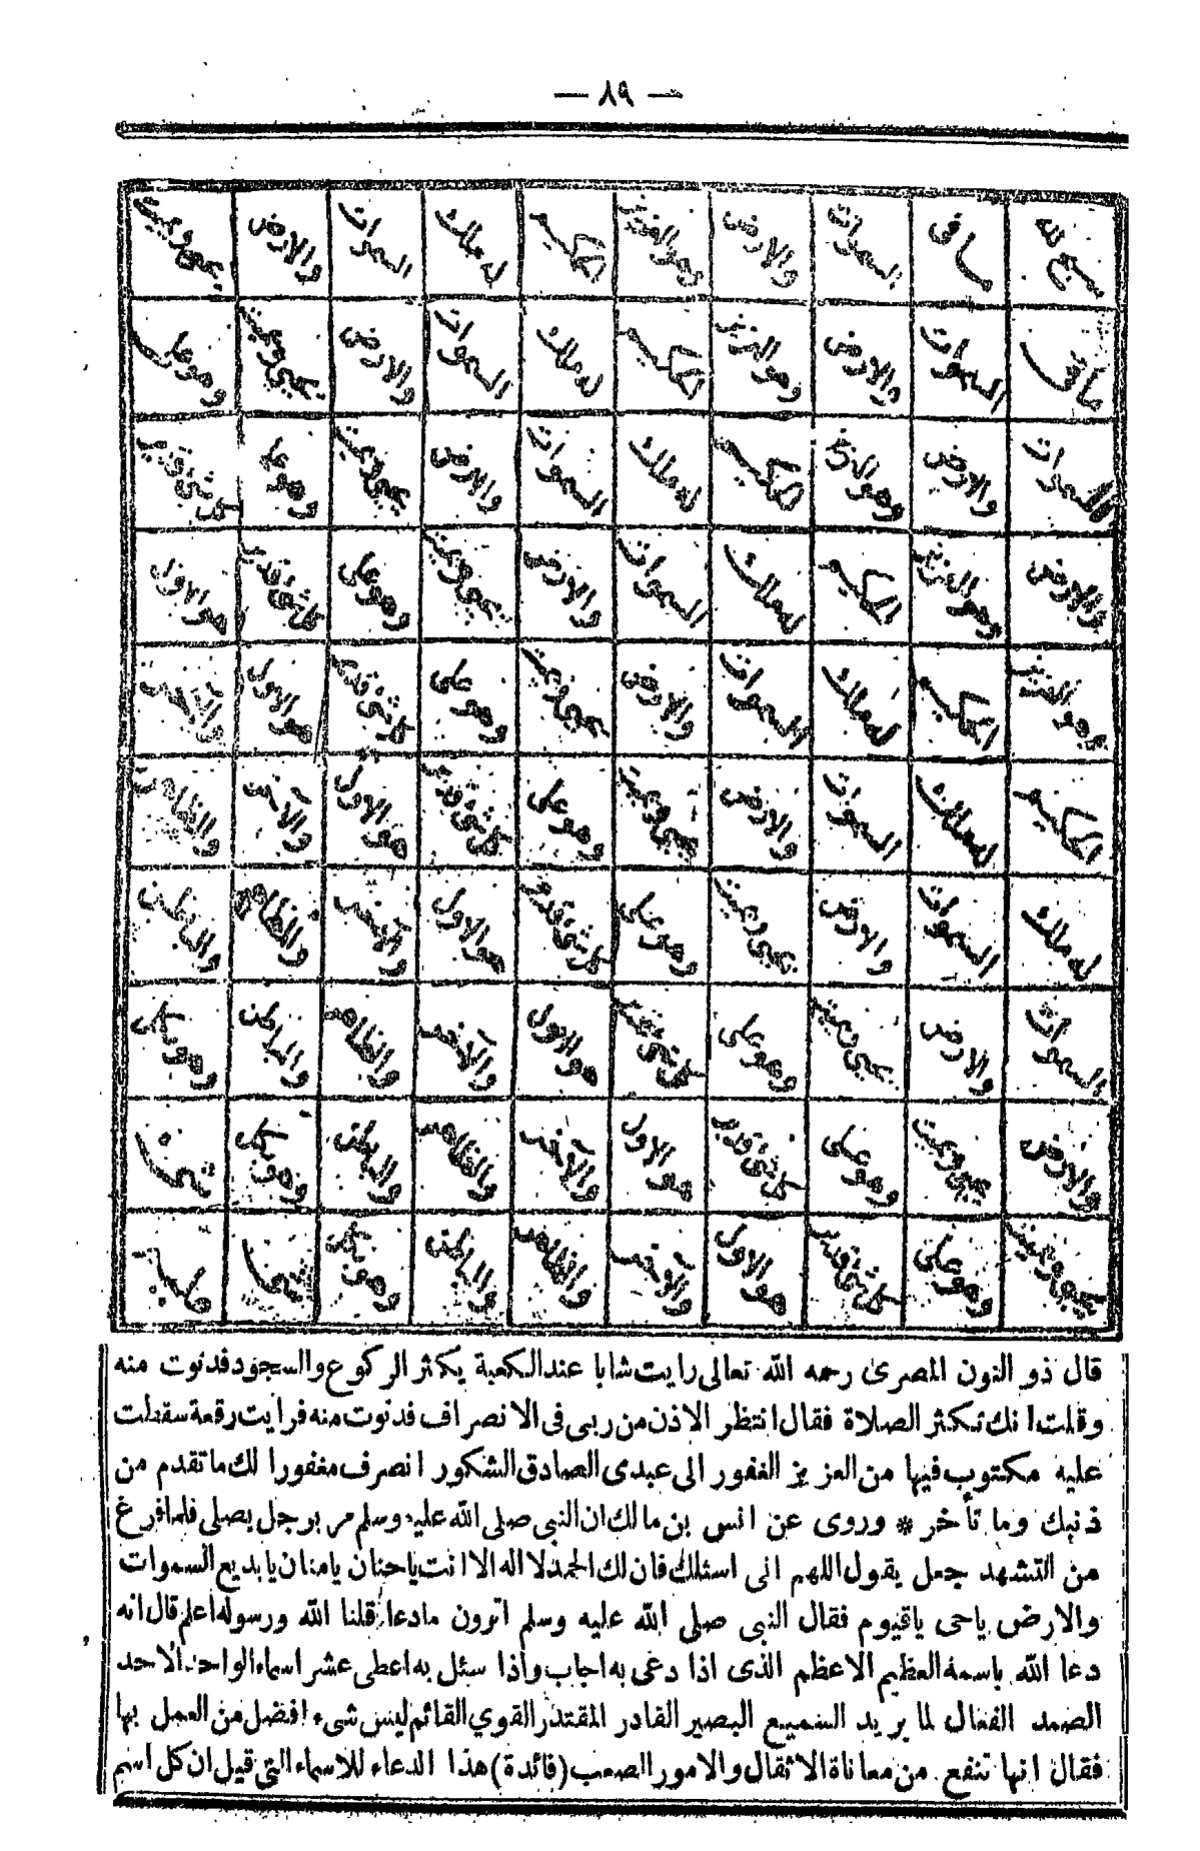 — ٨٩ —
سبح لله مافى السموات والارض وهو العزيز الحكيم له ملك السموات والارض يحيى ويميت
مافى السموات والارض وهو العزيز الحكيم له ملك السموات والارض يحيى ويميت وهو على
السموات والارض وهو العزيز الحكيم له ملك السموات والارض يحيى ويميت وهو على كل شئ قدير
والارض وهو العزيز الحكيم له ملك السموات والارض يحيى ويميت وهو على كل شئ قدير هو الاول
وهو العزيز الحكيم له ملك السموات والارض يحيى ويميت وهو على كل شئ قدير هو الاول والآخر
الحكيم له ملك السموات والارض يحيى ويميت وهو على كل شئ قدير هو الاول والآخر والظاهر
له ملك السموات والارض يحيى ويميت وهو على كل شئ قدير هو الاول والآخر والظاهر والباطن
السموات والارض يحيى ويميت وهو على كل شئ قدير هو الاول والآخر والظاهر والباطن وهو بكل
والارض يحيى ويميت وهو على كل شئ قدير هو الاول والآخر والظاهر والباطن وهو بكل شئ
يحيى ويميت وهو على كل شئ قدير هو الاول والآخر والظاهر والباطن وهو بكل شئ عليم
قال ذو النون المصرى رحمه الله تعالى رايت شابا عند الكعبة يكثر الركوع والسجود فدنوت منه
وقلت انك تكثر الصلاة فقال انتظر الاذن من ربى فى الانصراف فدنوت منه فرايت رقعة سقطت
عليه مكتوب فيها من العزيز الغفور الى عبدى الصادق الشكور انصرف مغفورا لك ما تقدم من
ذنبك وما تأخر * وروى عن انس بن مالك ان النبى صلى الله عليه وسلم مر برجل يصلى فلما فرغ
من التشهد جعل يقول اللهم انى اسئلك فان لك الحمد لا اله الا انت ياحنان يامنان يابديع السموات
والارض ياحى ياقيوم فقال النبى صلى الله عليه وسلم اترون مادعا قلنا الله ورسوله اعلم قال انه
دعا الله باسمه العظيم الاعظم الذى اذا دعى به اجاب واذا سئل به اعطى عشر اسماء الواحد الاحد
الصمد الفعال لما يريد السميع البصير القادر المقتدر القوي القائم ليس شىء افضل من العمل بها
فقال انها تنفع من معاناة الاثقال والامور الصعب (فائدة) هذا الدعاء للاسماء التى قيل ان كل اسم